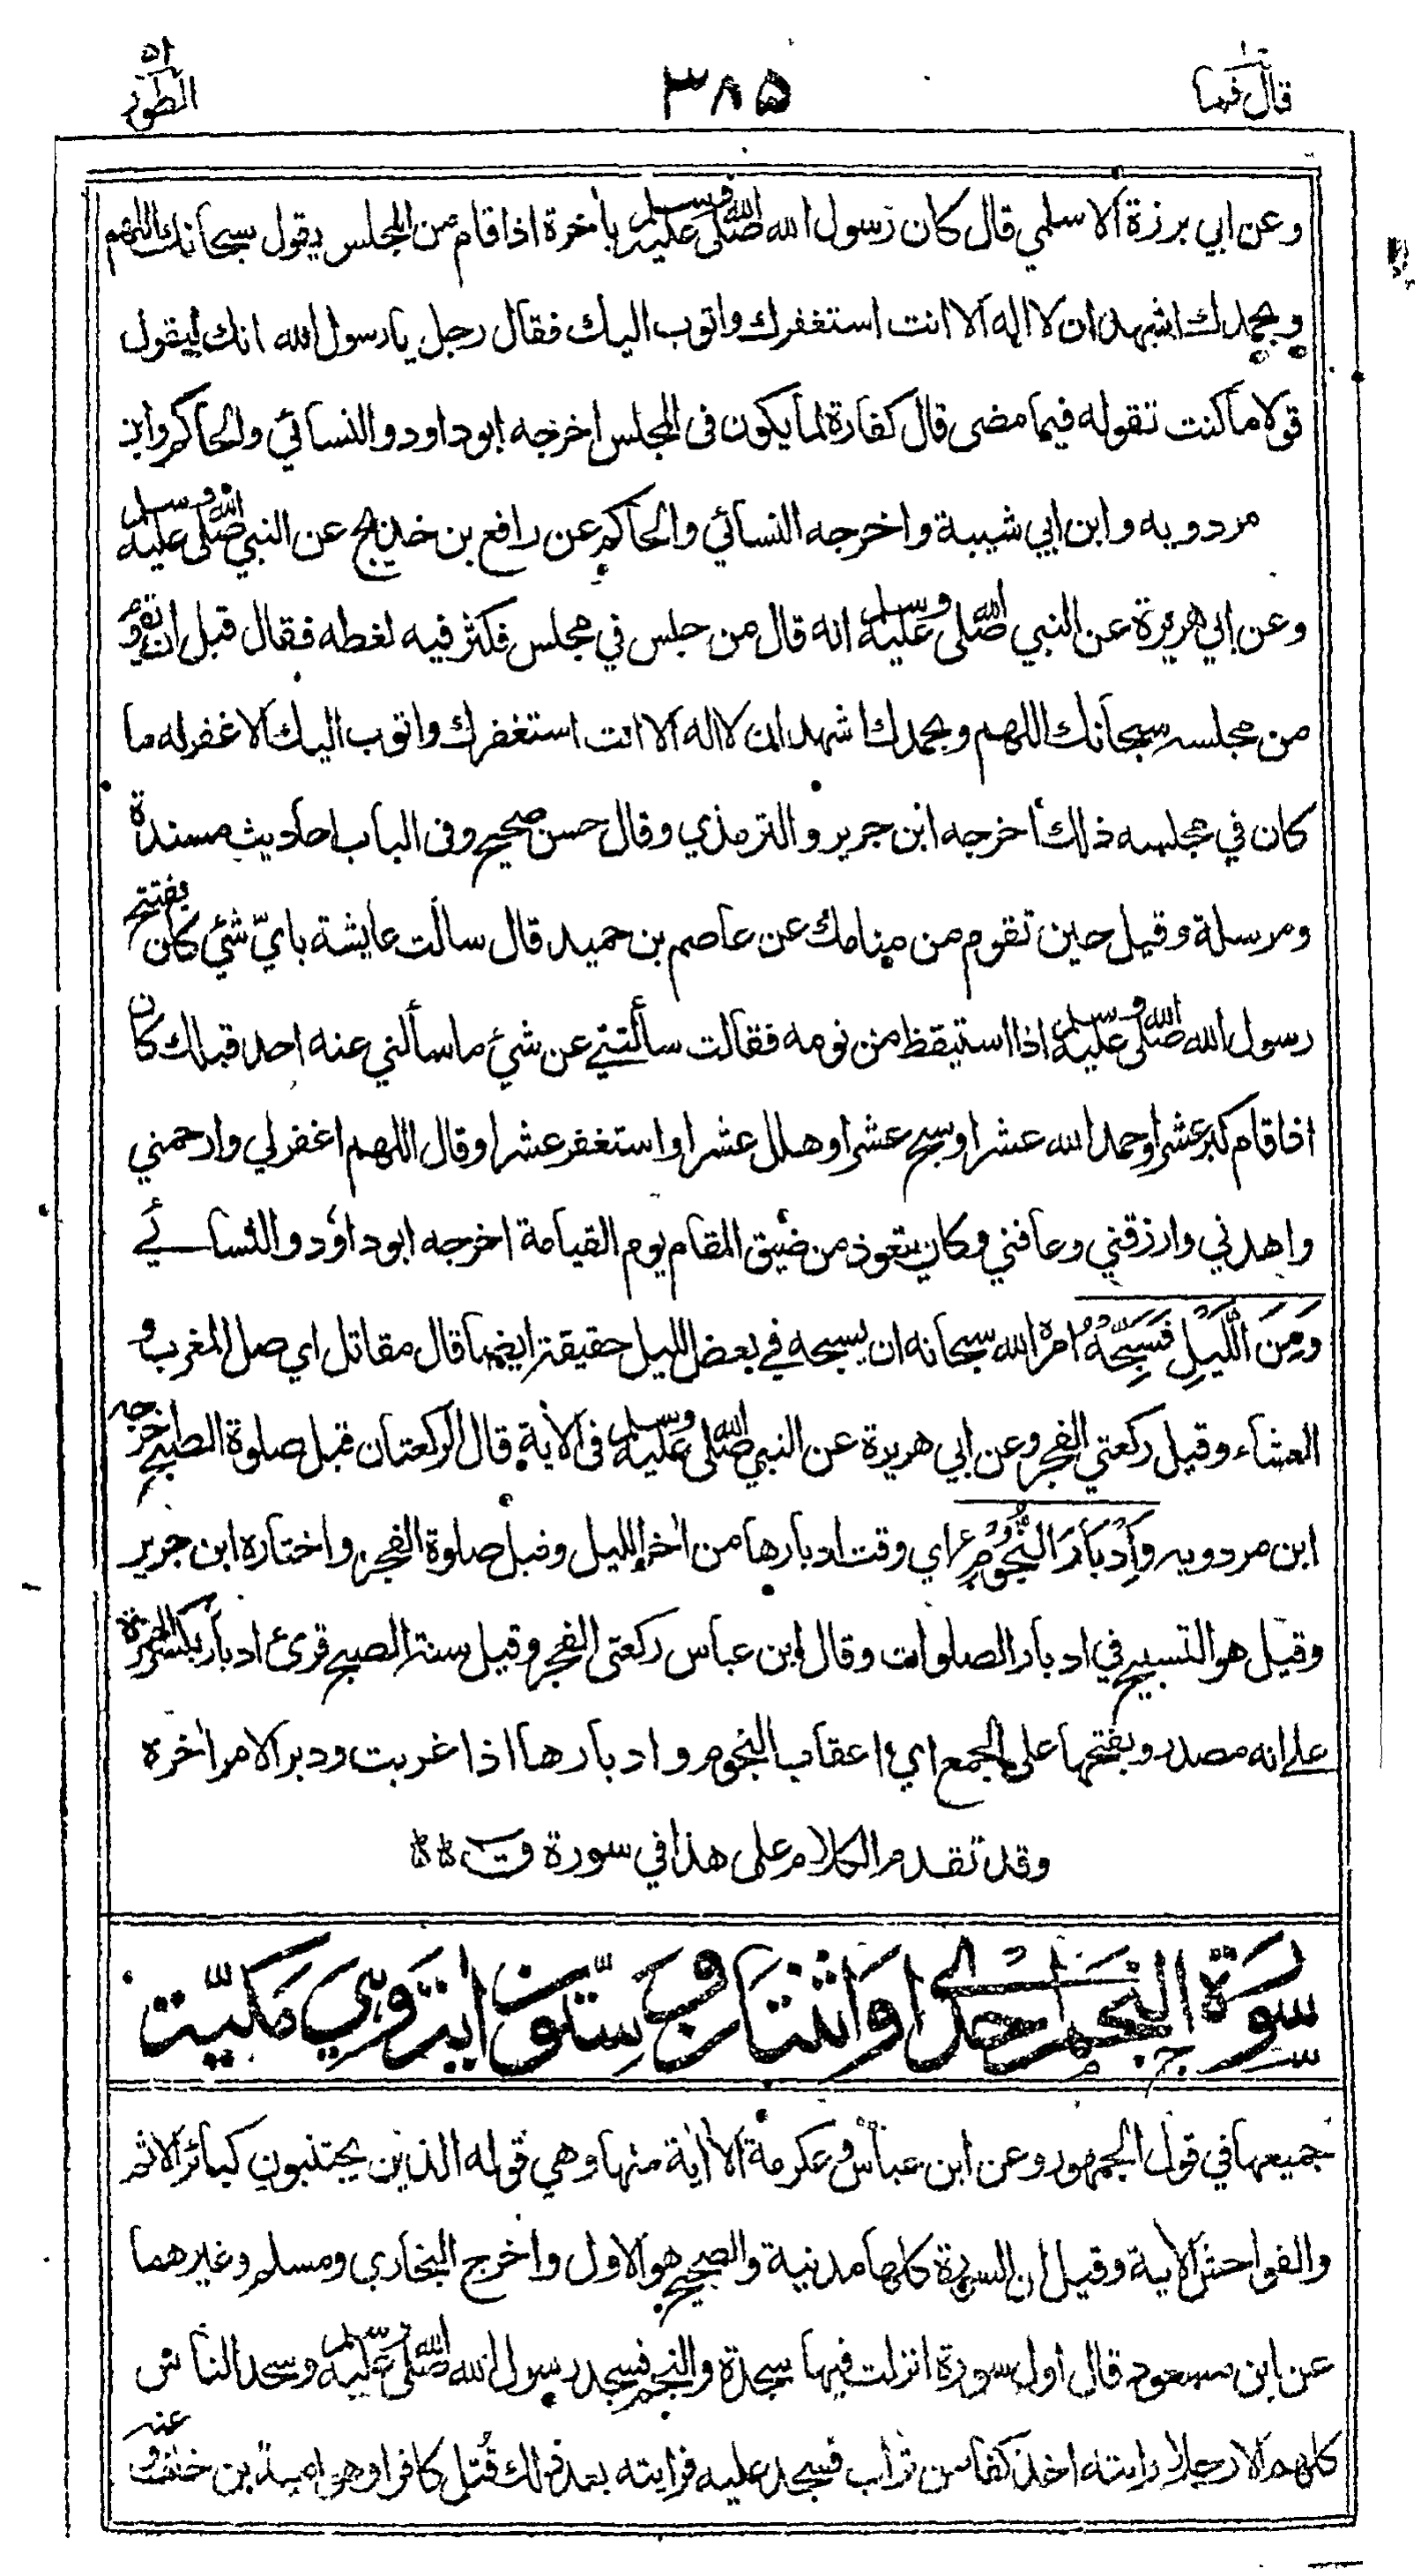 قال فما
٣٨٥
الطور
٥٢
وعن ابي برزة الاسلمي قال كان رسول الله صلى الله عليه وسلم بأخرة اذا قام من المجلس يقول سبحانك اللهم
وبحمدك اشهد ان لا اله الا انت استغفرك واتوب اليك فقال رجل يا رسول الله انك ليقول
قولا ما كنت تقوله فيما مضى قال كفارة لما يكون فى المجلس اخرجه ابو داود والنسائي والحاكم وابن
مردويه وابن ابي شيبة واخرجه النسائي والحاكم عن رافع بن خديج عن النبي صلى الله عليه وسلم
وعن ابي هريرة عن النبي صلى الله عليه وسلم انه قال من جلس في مجلس فكثر فيه لغطه فقال قبل ان يقوم
من مجلسه سبحانك اللهم وبحمدك اشهد ان لا اله الا انت استغفرك واتوب اليك الا غفر له ما
كان في مجلسه ذلك أخرجه ابن جرير والترمذي وقال حسن صحيح وفى الباب احاديث مسندة
ومرسلة وقيل حين تقوم من منامك عن عاصم بن حميد قال سالت عايشة باي شئ كان يفتتح
رسول الله صلى الله عليه وسلم اذا استيقظ من نومه فقالت سألتني عن شئ ما سألني عنه احد قبلك كان
اذا قام كبر عشرا وحمد الله عشرا وسبح عشرا وهلل عشرا واستغفر عشرا وقال اللهم اغفر لي وارحمني
واهدني وارزقني وعافني وكان يتعوذ من ضيق المقام يوم القيامة اخرجه ابو داود والنسائي
وَمِنَ اللَّيْلِ فَسَبِّحْهُ امره الله سبحانه ان يسبحه في بعض الليل حقيقة ايضا قال مقاتل اي صل المغرب و
العشاء وقيل ركعتي الفجر وعن ابي هريرة عن النبي صلى الله عليه وسلم فى الأية قال الركعتان قبل صلوة الصبح اخرجه
ابن مردويه وَإِدْبَارَ النُّجُومِ اي وقت ادبارها من اخر الليل وقبل صلوة الفجر واختاره ابن جرير
وقيل هو التسبيح في ادبار الصلوات وقال ابن عباس ركعتى الفجر وقيل سنة الصبح قرئ ادبار بكسر الهمزة
على انه مصدر وبفتحها على الجمع اي اعقاب النجوم وادبارها اذا غربت ودبر الامر اخره
وقد تقدم الكلام على هذا في سورة ق
سورة النجم احدى او اثنتان وستون اية وهي مكية
جميعها في قول الجمهور وعن ابن عباس وعكرمة الا اية منها وهي قوله الذين يجتنبون كبائر الاثم
والفواحش الاية وقيل ان السورة كلها مدنية والصحيح هو الاول واخرج البخاري ومسلم وغيرهما
عن ابن مسعود قال اول سورة انزلت فيها سجدة والنجم فسجد رسول الله صلى الله عليه وسلم وسجد الناس
كلهم الا رجلا رايته اخذ كفا من تراب فسجد عليه فرايته بعد ذلك قُتل كافرا وهو امية بن خلف وعنه